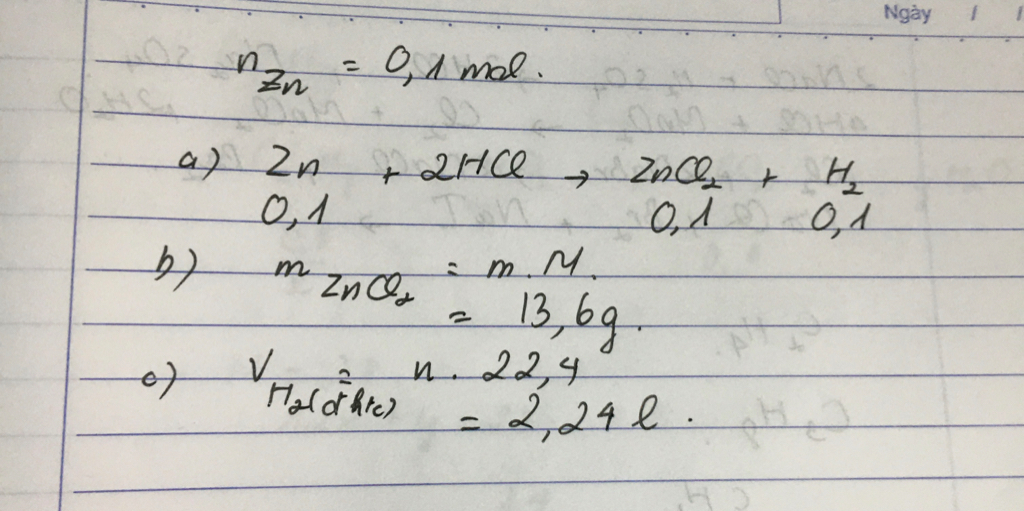 Ngày / /
n Zn = 0,1 mol.
a) Zn + 2HCl → ZnCl₂ + H₂
0,1 0,1 0,1
b) m ZnCl₂ = m . M.
= 13,6g.
c) V H₂(đktc) = n . 22,4
= 2,24 l .